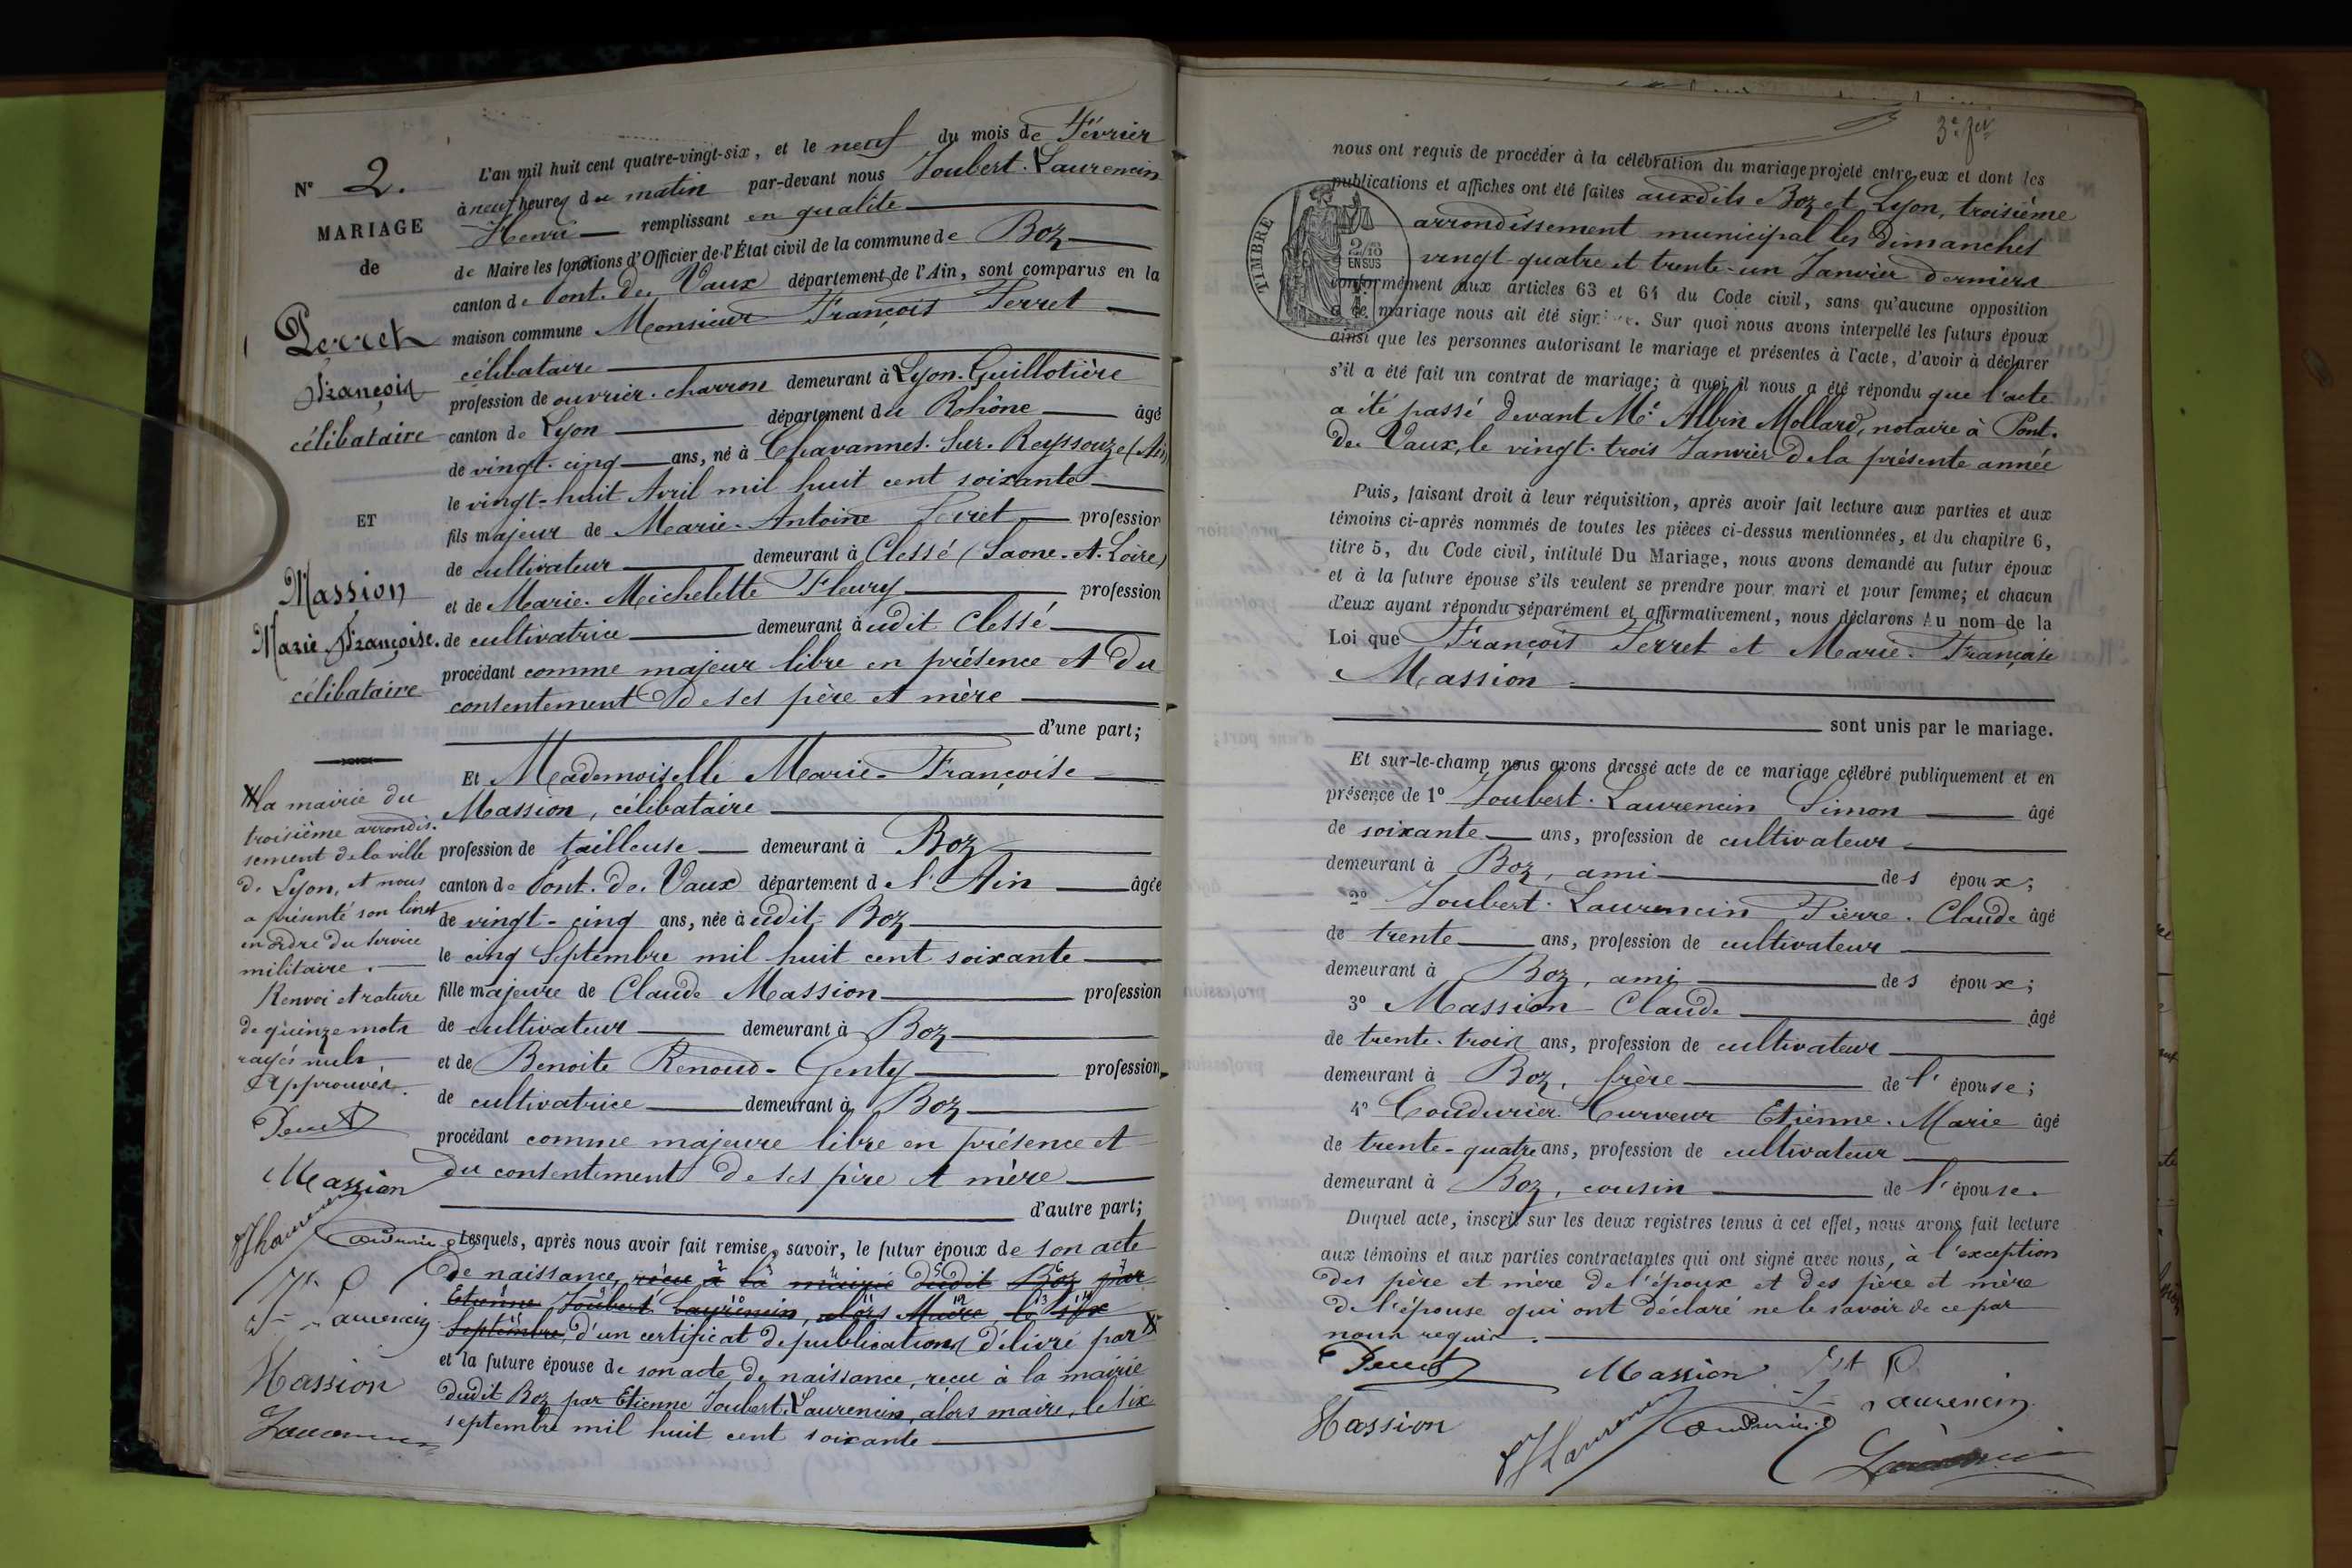 N° 2.
MARIAGE
de
Perret
François
célibataire
ET
Massion
Marie Françoise.
célibataire
la mairie du
troisième arrondis.
sement de la ville
de Lyon, et nous
a présenté son livret
en ordre du service
militaire.
Renvoi et rature
de quinze mots
rayés nuls
Approuvés.
Perret
Massion
Massion
L'an mil huit cent quatre-vingt-six, et le neuf du mois de Février
à neuf heures du matin par-devant nous Joubert-Laurencin
Henri remplissant en qualité
de Maire les fonctions d'Officier de l'État civil de la commune de Boz
canton de Pont-de-Vaux département de l'Ain, sont comparus en la
maison commune Monsieur François Perret
célibataire
profession de ouvrier-charron demeurant à Lyon-Guillotière
canton de Lyon département du Rohône âgé
de vingt-cinq ans, né à Chavannes-sur-Reyssouze (Ain)
le vingt-huit Avril mil huit cent soixante
fils majeur de Marie-Antoine Perret profession
de cultivateur demeurant à Clessé (Saone-et-Loire)
et de Marie-Michelette Fleury profession
de cultivatrice demeurant audit Clessé
procédant comme majeur libre en présence et du
consentement de ses père et mère
d'une part;
Et Mademoiselle Marie-Françoise
Massion, célibataire
profession de tailleuse demeurant à Boz
canton de Pont-de-Vaux département de l'Ain âgée
de vingt-cinq ans, née audit Boz
le cinq Septembre mil huit cent soixante
fille majeure de Claude Massion profession
de cultivateur demeurant à Boz
et de Benoite Renoud-Genty profession
de cultivatrice demeurant à Boz
procédant comme majeure libre en présence et
du consentement de ses père et mère
d'autre part;
Lesquels, après nous avoir fait remise, savoir, le futur époux de son acte
de naissance, récu à la mairie dudit Boz par
Etienne Joubert Laurencin, alors Maire, le six
Septembre, d'un certificat de publications délivré par
et la future épouse de son acte de naissance, récu à la mairie
dudit Boz par Etienne Joubert-Laurencin, alors maire, le six
septembre mil huit cent soixante
TIMBRE
2/10
EN SUS
nous ont requis de procéder à la célébration du mariage projeté entre eux et dont les
publications et affiches ont été faites auxdits Boz et Lyon, troisième
arrondissement municipal les Dimanches
vingt-quatre et trente-un Janvier derniers
conformément aux articles 63 et 64 du Code civil, sans qu'aucune opposition
à ce mariage nous ait été signifiée. Sur quoi nous avons interpellé les futurs époux
ainsi que les personnes autorisant le mariage et présentes à l'acte, d'avoir à déclarer
s'il a été fait un contrat de mariage; à quoi il nous a été répondu que l'acte
a été passé devant Me Albin Mollard, notaire à Pont-
de-Vaux, le vingt-trois Janvier de la présente année
Puis, faisant droit à leur réquisition, après avoir fait lecture aux parties et aux
témoins ci-après nommés de toutes les pièces ci-dessus mentionnées, et du chapitre 6,
titre 5, du Code civil, intitulé Du Mariage, nous avons demandé au futur époux
et à la future épouse s'ils veulent se prendre pour mari et pour femme; et chacun
d'eux ayant répondu séparément et affirmativement, nous déclarons Au nom de la
Loi que François Perret et Marie-Française
Massion
sont unis par le mariage.
Et sur-le-champ nous avons dressé acte de ce mariage célébré publiquement et en
présence de 1° Joubert-Laurencin Simon âgé
de soixante ans, profession de cultivateur
demeurant à Boz, ami des époux;
2° Joubert-Laurencin Pierre-Claude âgé
de trente ans, profession de cultivateur
demeurant à Boz, ami des époux;
3° Massion Claude âgé
de trente-trois ans, profession de cultivateur
demeurant à Boz, frère de l'épouse;
4° Coudurier Curveur Etienne-Marie âgé
de trente-quatre ans, profession de cultivateur
demeurant à Boz, cousin de l'épouse.
Duquel acte, inscrit sur les deux registres tenus à cet effet, nous avons fait lecture
aux témoins et aux parties contractantes qui ont signé avec nous, à l'exception
des père et mère de l'époux et des père et mère
de l'épouse qui ont déclaré ne le savoir de ce par
nous requis.
Perret Massion
Laurencin
Massion